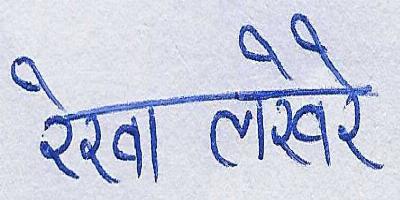 रेखा लखेरे